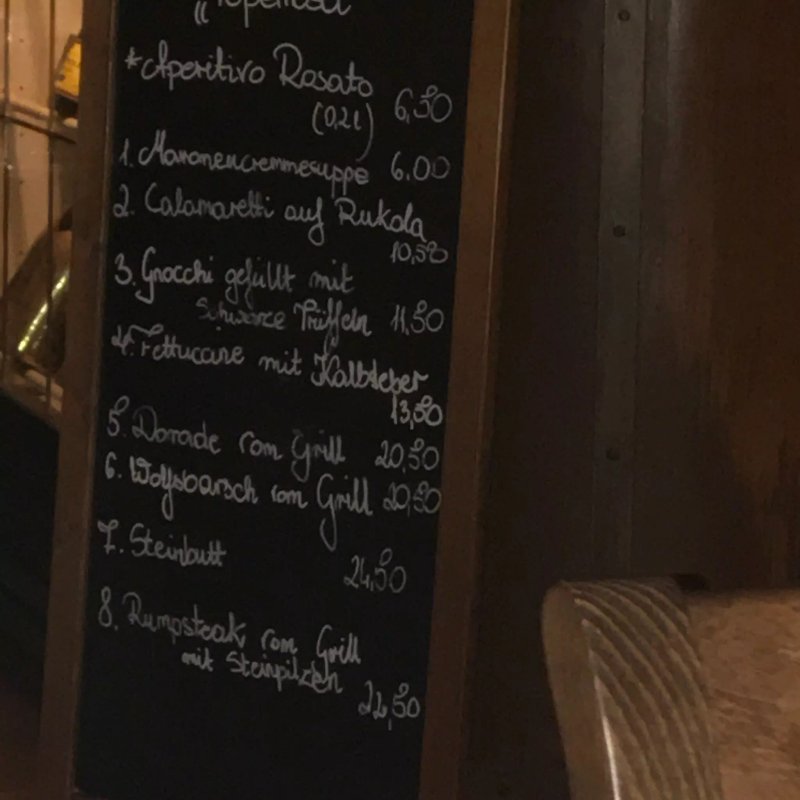 *Aperitivo Rosato 6,50
(0,2l)
1. Maronencremmesuppe 6.00
2. Calamaretti auf Rukola
10,50
3. Gnocchi gefüllt mit
Schwarze Trüffeln 11,50
4. Fettuccine mit Kalbsleber
13,50
5. Dorade vom Grill 20,50
6. Wolfsbarsch vom Grill 20,50
7. Steinbutt
24,50
8. Rumpsteak vom Grill
mit Steinpilzen
22,50